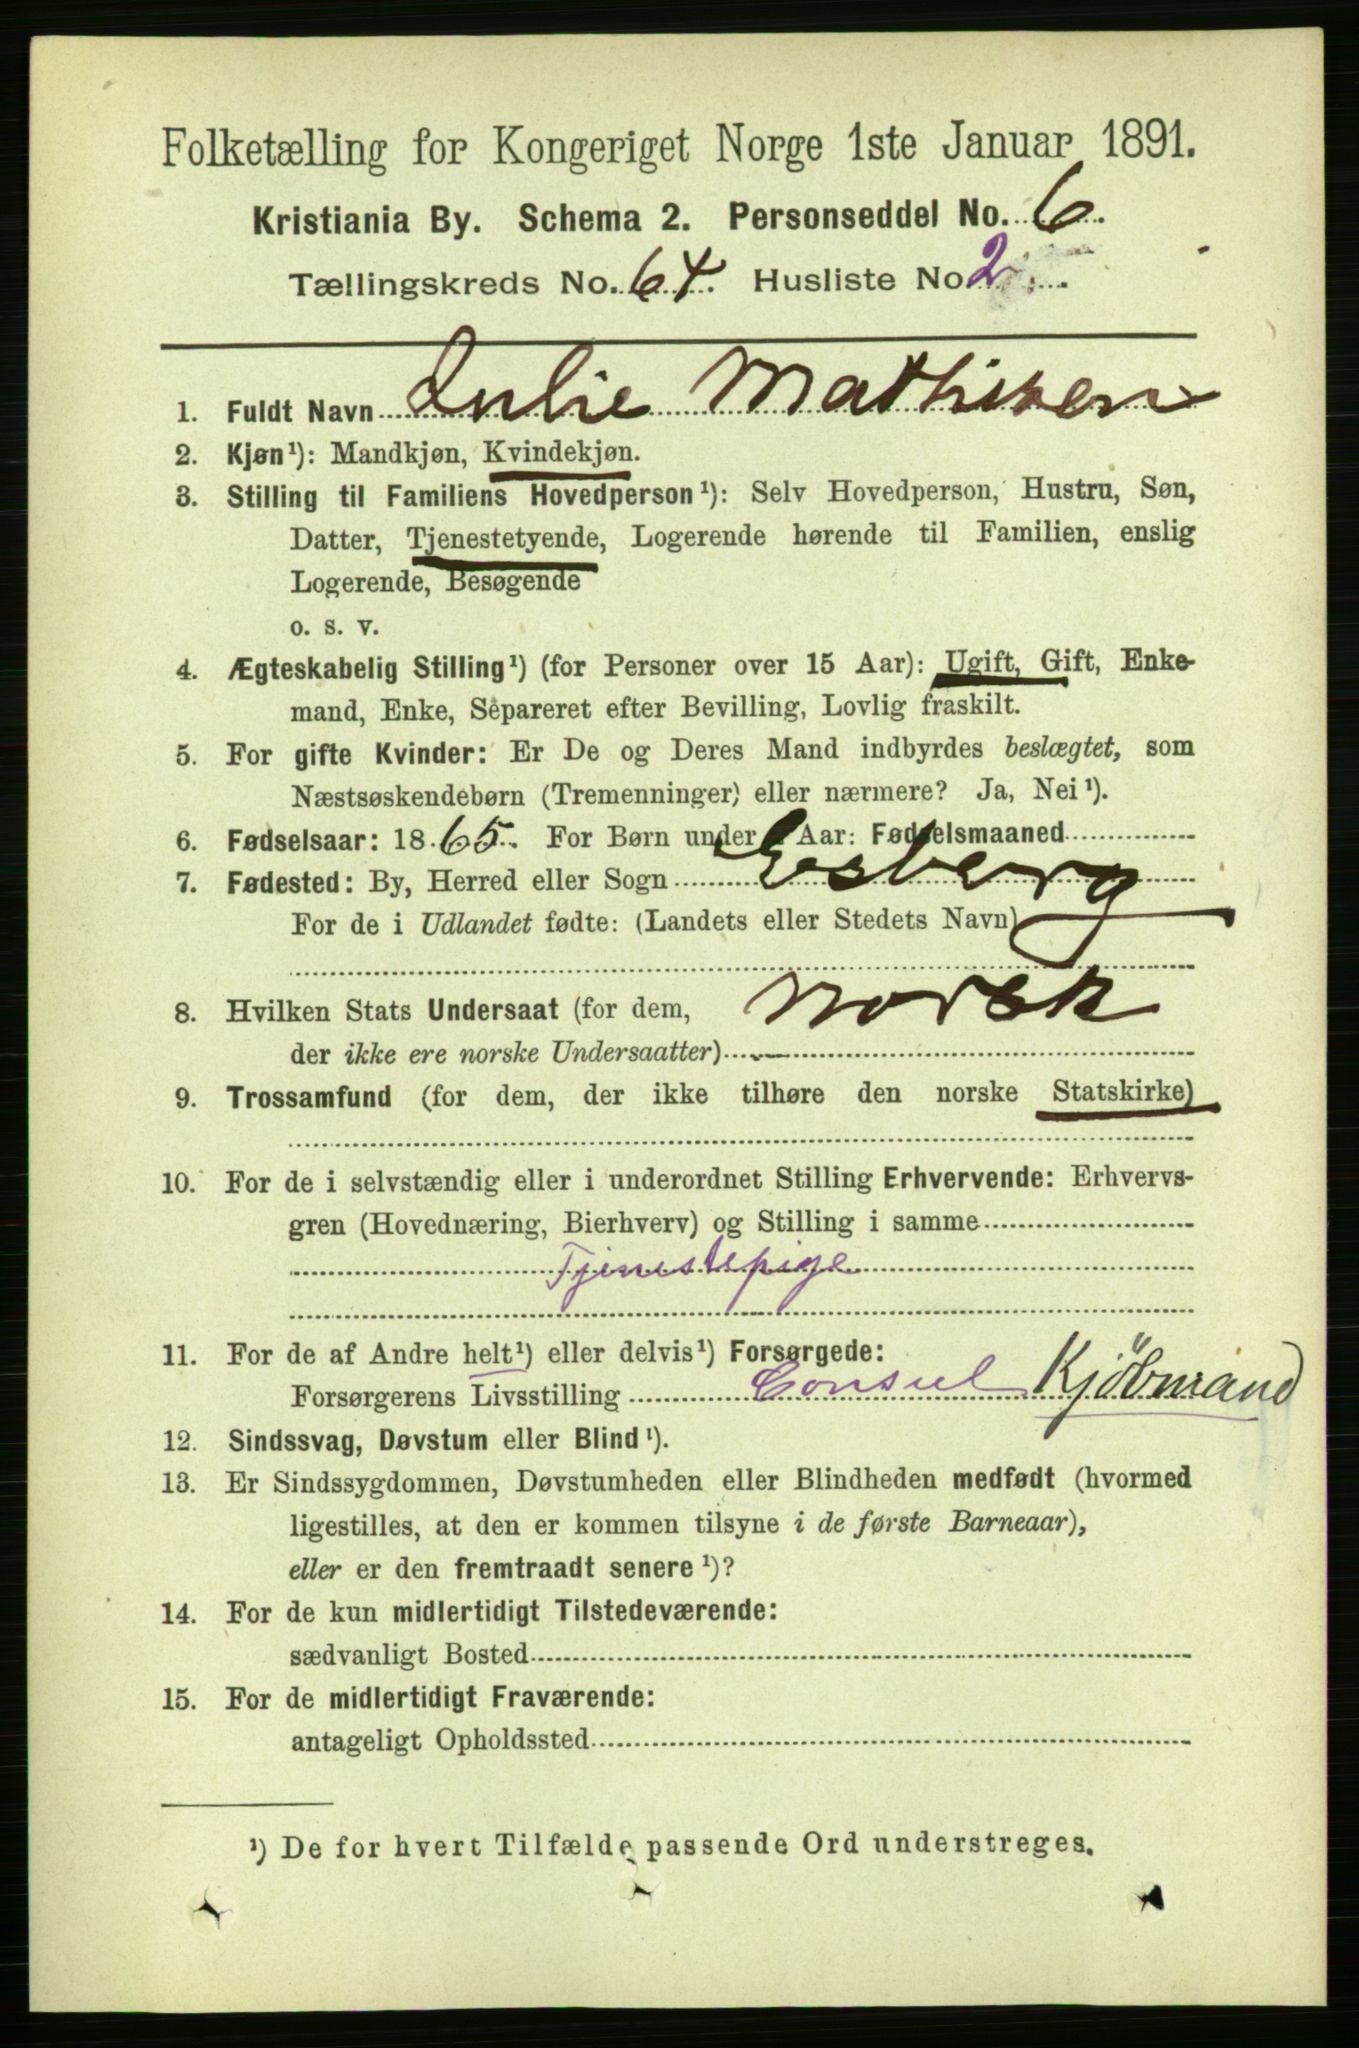 Folketælling for Kongeriget Norge 1ste Januar 1891.
Kristiania By. Schema 2. Personseddel No. 6.
Tællingskreds No. 64. Husliste No 2
1. Fuldt Navn Julie Mathisen
2. Kjøn¹): Mandkjøn, Kvindekjøn.
3. Stilling til Familiens Hovedperson¹): Selv Hovedperson, Hustru, Søn,
Datter, Tjenestetyende, Logerende hørende til Familien, enslig
Logerende, Besøgende
o. s. v.
4. Ægteskabelig Stilling¹) (for Personer over 15 Aar): Ugift, Gift, Enke-
mand, Enke, Separeret efter Bevilling, Lovlig fraskilt.
5. For gifte Kvinder: Er De og Deres Mand indbyrdes beslægtet, som
Næstsøskendebørn (Tremenninger) eller nærmere? Ja, Nei¹).
6. Fødselsaar: 1865. For Børn under Aar: Fødselsmaaned
7. Fødested: By, Herred eller Sogn Eisberg
For de i Udlandet fødte: (Landets eller Stedets Navn)
8. Hvilken Stats Undersaat (for dem, Norsk
der ikke ere norske Undersaatter)
9. Trossamfund (for dem, der ikke tilhøre den norske Statskirke)
10. For de i selvstændig eller i underordnet Stilling Erhvervende: Erhvervs-
gren (Hovednæring, Bierhverv) og Stilling i samme
Tjenestepige
11. For de af Andre helt¹) eller delvis¹) Forsørgede:
Forsørgerens Livsstilling Consul Kjöbmand
12. Sindssvag, Døvstum eller Blind¹).
13. Er Sindssygdommen, Døvstumheden eller Blindheden medfødt (hvormed
ligestilles, at den er kommen tilsyne i de første Barneaar),
eller er den fremtraadt senere¹)?
14. For de kun midlertidigt Tilstedeværende:
sædvanligt Bosted
15. For de midlertidigt Fraværende:
antageligt Opholdssted
¹) De for hvert Tilfælde passende Ord understreges.